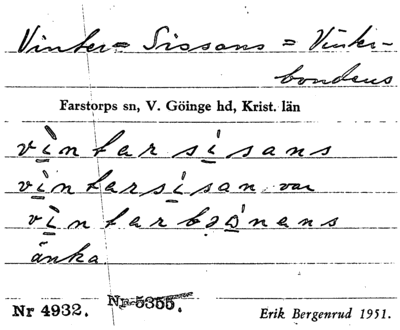 Vinter= Sissans = Vinter-
bondens
Farstorps sn, V. Göinge hd, Krist. län
vìntarsisans
vìntarsisan var
vìntarbɔnens
änka
Nr 4932. Nr 5355.
Erik Bergenrud 1951.